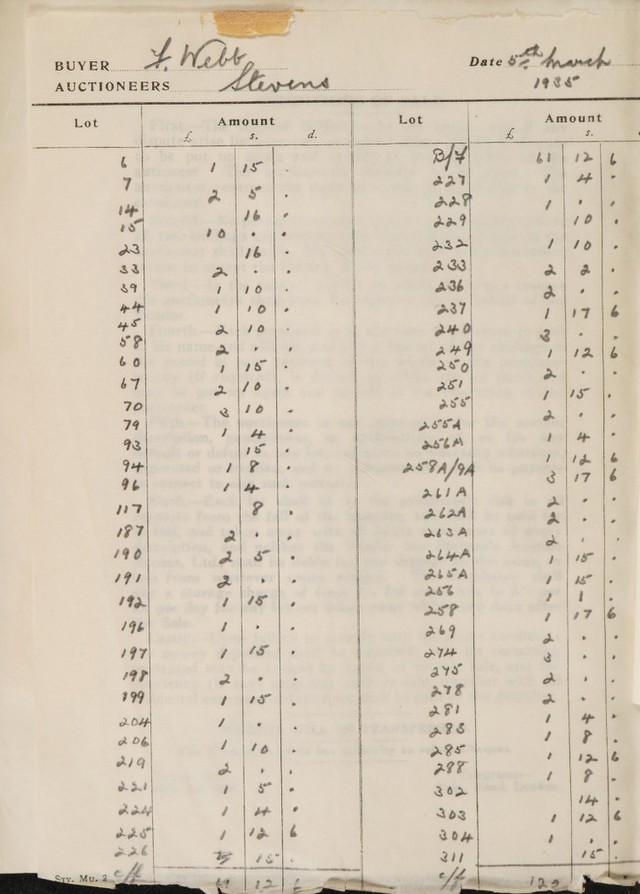 BUYER F. Webb Date 5th March
AUCTIONEERS Stevens 1935
Lot Amount Lot Amount
£ s. d. £ s.
6 1 15 . B/F 61 12 6
7 2 5 . 227 1 4 .
14 16 . 228 1 . .
15 10 . . 229 10 .
23 16 . 232 1 10 .
33 2 . . 233 2 2 .
39 1 10 . 236 2 . .
44 1 10 . 237 1 17 6
45 2 10 . 240 3 . .
58 2 . . 249 1 12 6
60 1 15 . 250 2 . .
67 2 10 . 251 1 15 .
70 3 10 . 255 2 . .
79 1 4 . 255A 1 4 .
93 15 . 256A 1 12 6
94 1 8 . 258A/9A 3 17 6
96 1 4 . 261A 2 . .
117 8 . 262A 2 . .
187 2 . . 263A 2 . .
190 2 5 . 264A 1 15 .
191 2 . . 265A 1 15 .
192 1 15 . 256 1 1 .
196 1 . . 258 1 17 6
197 1 15 . 269 2 . .
198 2 . . 274 3 . .
199 1 15 . 275 2 . .
204 1 . . 278 2 . .
206 1 10 . 281 1 4 .
219 2 . . 283 1 8 .
221 1 5 . 285 1 12 6
224 1 4 . 288 1 8 .
225 1 12 6 302 14 .
226 15 . 303 1 12 6
304 1 . .
311 15 .
Sty. Mu. 2 c/f 61 12 6 c/f